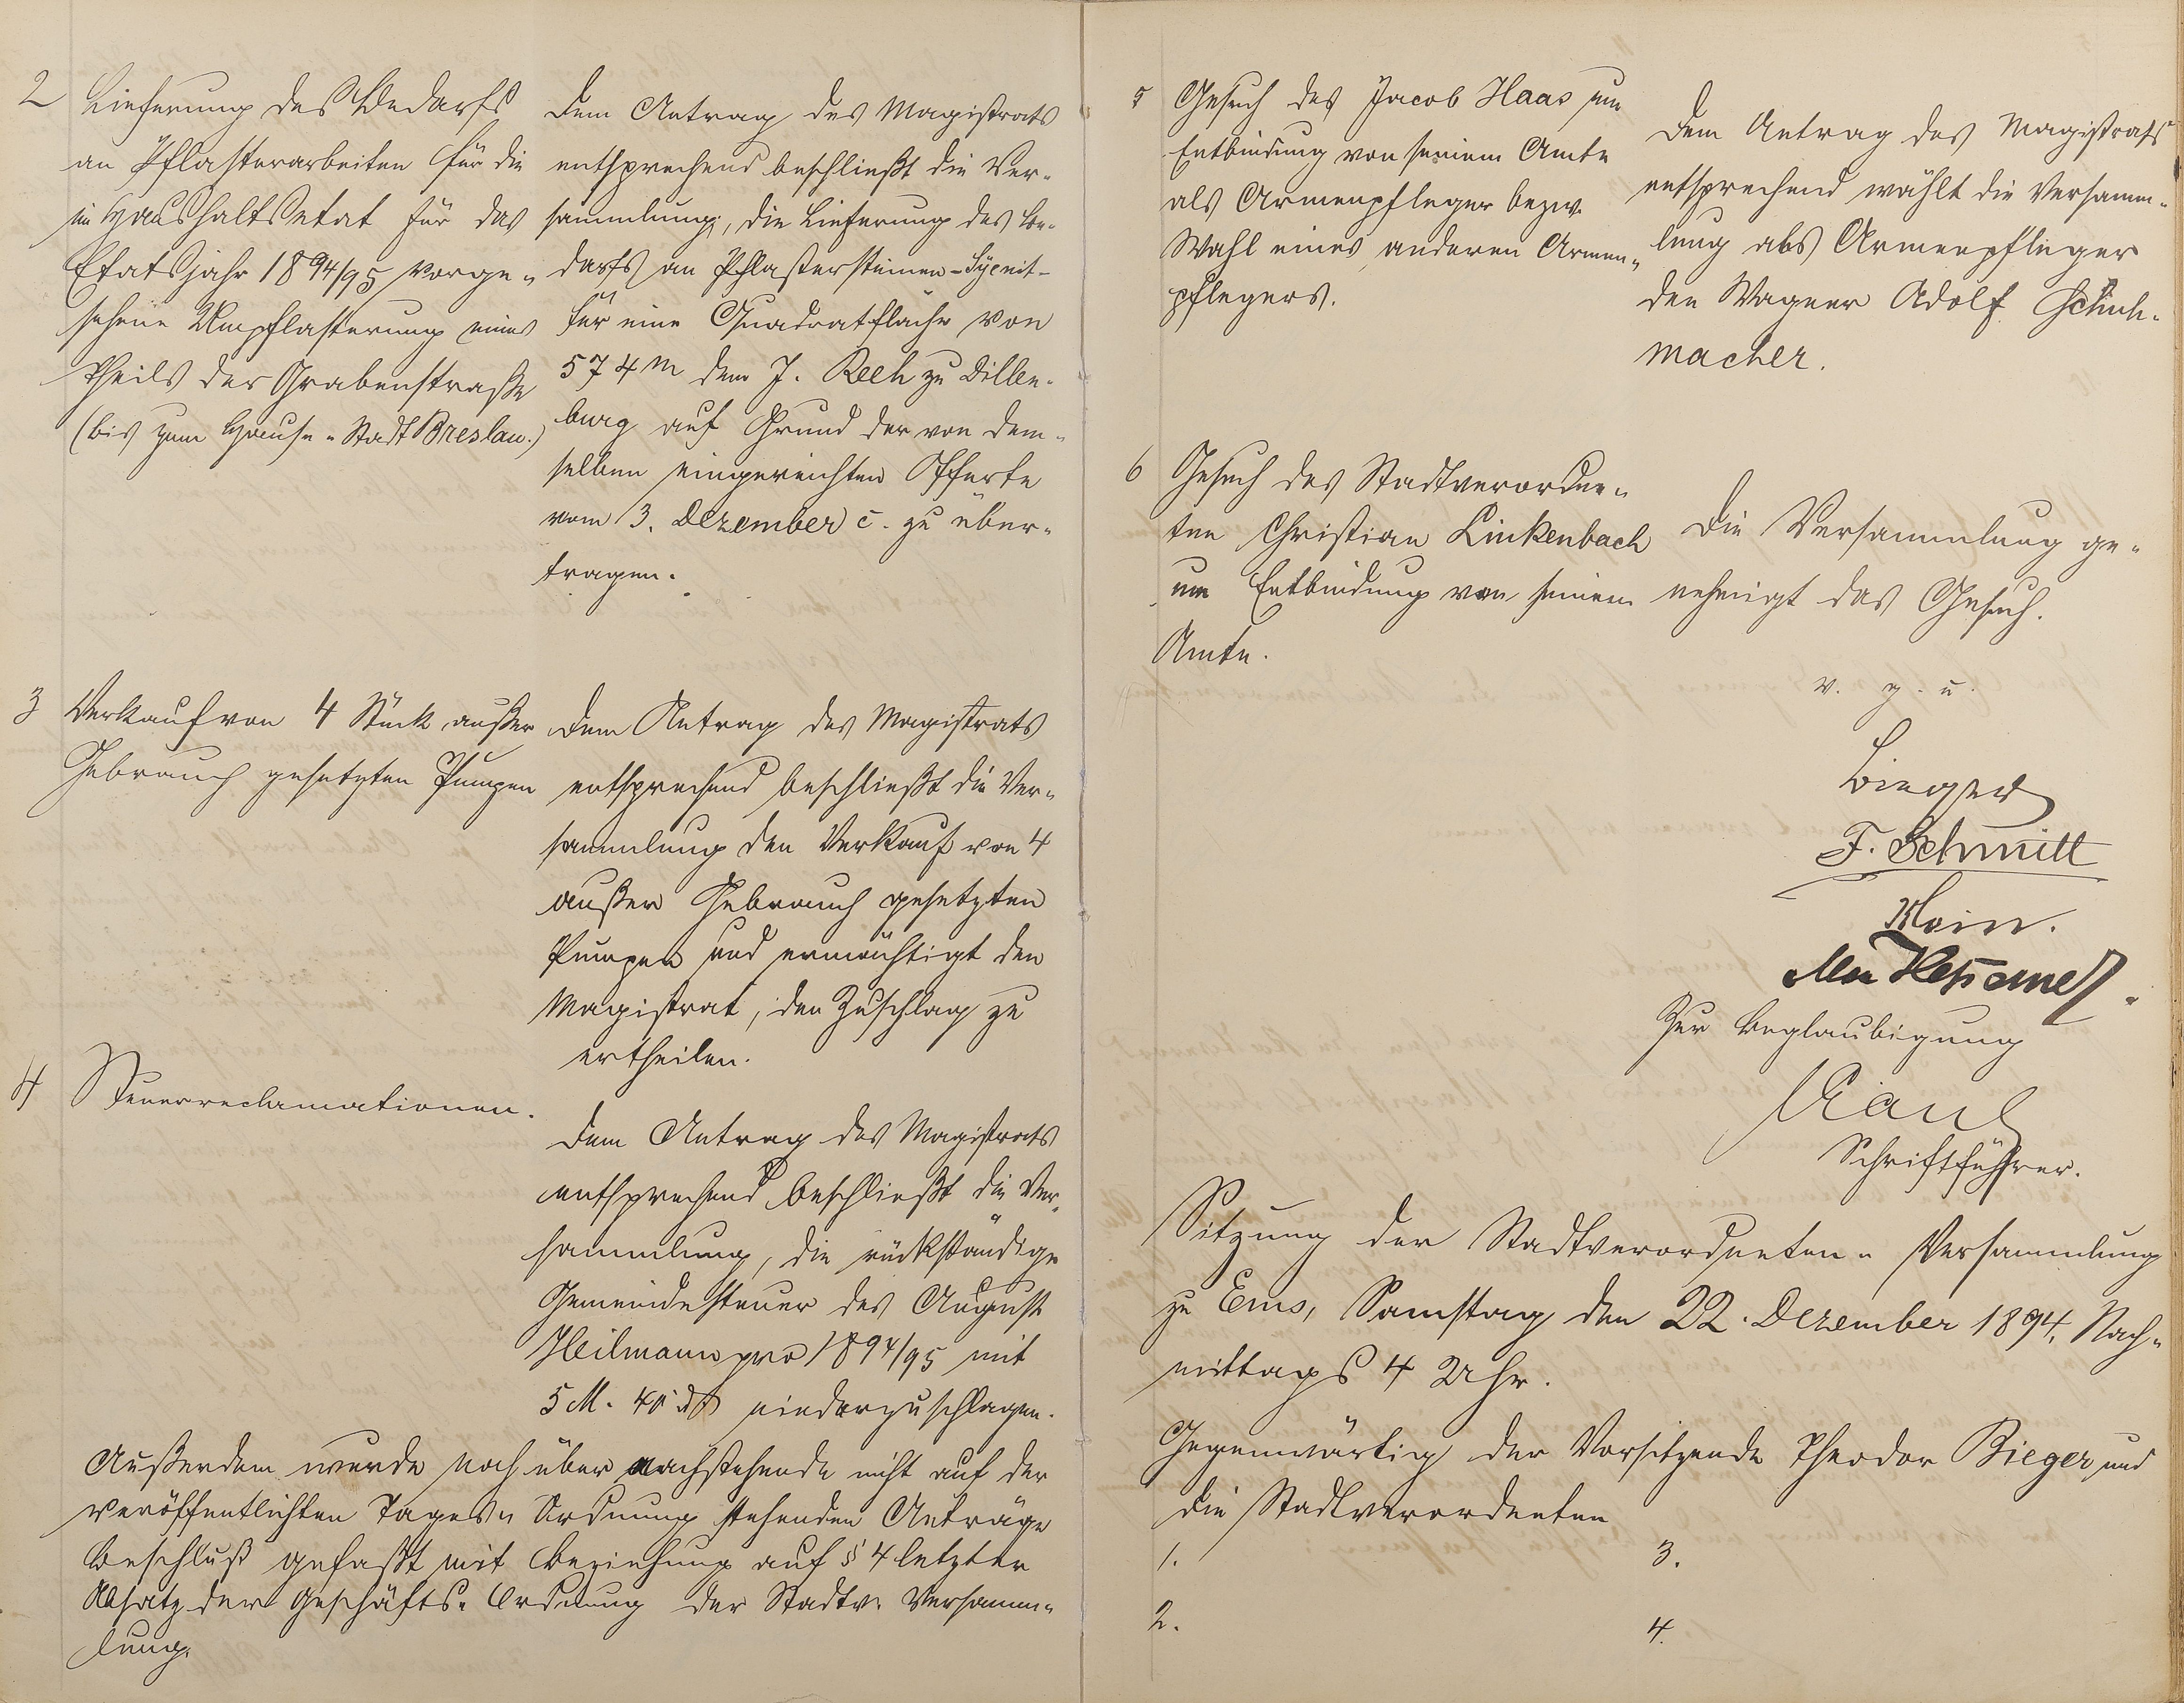 2
Lieferung des Bedarfs
an Pflasterarbeiten für die
im Haushaltsetat für das
Etatsjahr 1894/95 vorge-
sehene Umpflasterung eines
Theils der Grabenstraße
(bis zum Hause "Stadt Breslau.)
Dem Antrag des Magistrats
entsprechend beschließt die Ver-
sammlung, die Lieferung des Be-
darfs an Pflastersteinen - Syenit -
für eine Quadratfläche von
574 m dem J. Reeh zu Dillen-
burg auf Grund der von dem-
selben eingereichten Offerte
vom 3. Dezember c. zu über-
tragen.
3
Verkauf von 4 Stück außer
Gebrauch gesetzten Pumpen
Dem Antrag des Magistrats
entsprechend beschließt die Ver-
sammlung den Verkauf von 4
außer Gebrauch gesetzten
Pumpen und ermächtigt den
Magistrat, den Zuschlag zu
ertheilen.
4
Steuerreclamationen.
Dem Antrag des Magistrats
entsprechend beschließt die Ver-
sammlung, die rückständige
Gemeindesteuer des August
Heilmann pro 1894/95 mit
5 M. 40 niederzuschlagen.
Außerdem wurde noch über nachstehende nicht auf der
veröffentlichten Tages-Ordnung stehenden Anträge
Beschluß gefaßt mit Beziehung auf § 4 letzter
Absatz der Geschäfts-Ordnung der Stadtv. Versamm-
lung.
5
Gesuch des Jacob Haas um
Entbindung von seinem Amte
als Armenpfleger bezw.
Wahl eines anderen Armen-
pflegers.
Dem Antrag des Magistrats
entsprechend wählt die Versamm-
lung als Armenpfleger
den Wagner Adolf Schuh-
macher.
6
Gesuch des Stadtverordne-
ten Christian Linkenbach
um Entbindung von seinem
Amte.
Die Versammlung ge-
nehmigt das Gesuch.
v. g. u.
Bieger
F. Schmitt
Zur Beglaubigung
Schriftführer.
Sitzung der Stadtverordneten-Versammlung
zu Ems, Samstag den 22. Dezember 1894, Nach-
mittags 4 Uhr.
Gegenwärtig der Vorsitzende Theodor Bieger und
die Stadtverordneten
1. 3.
2. 4.